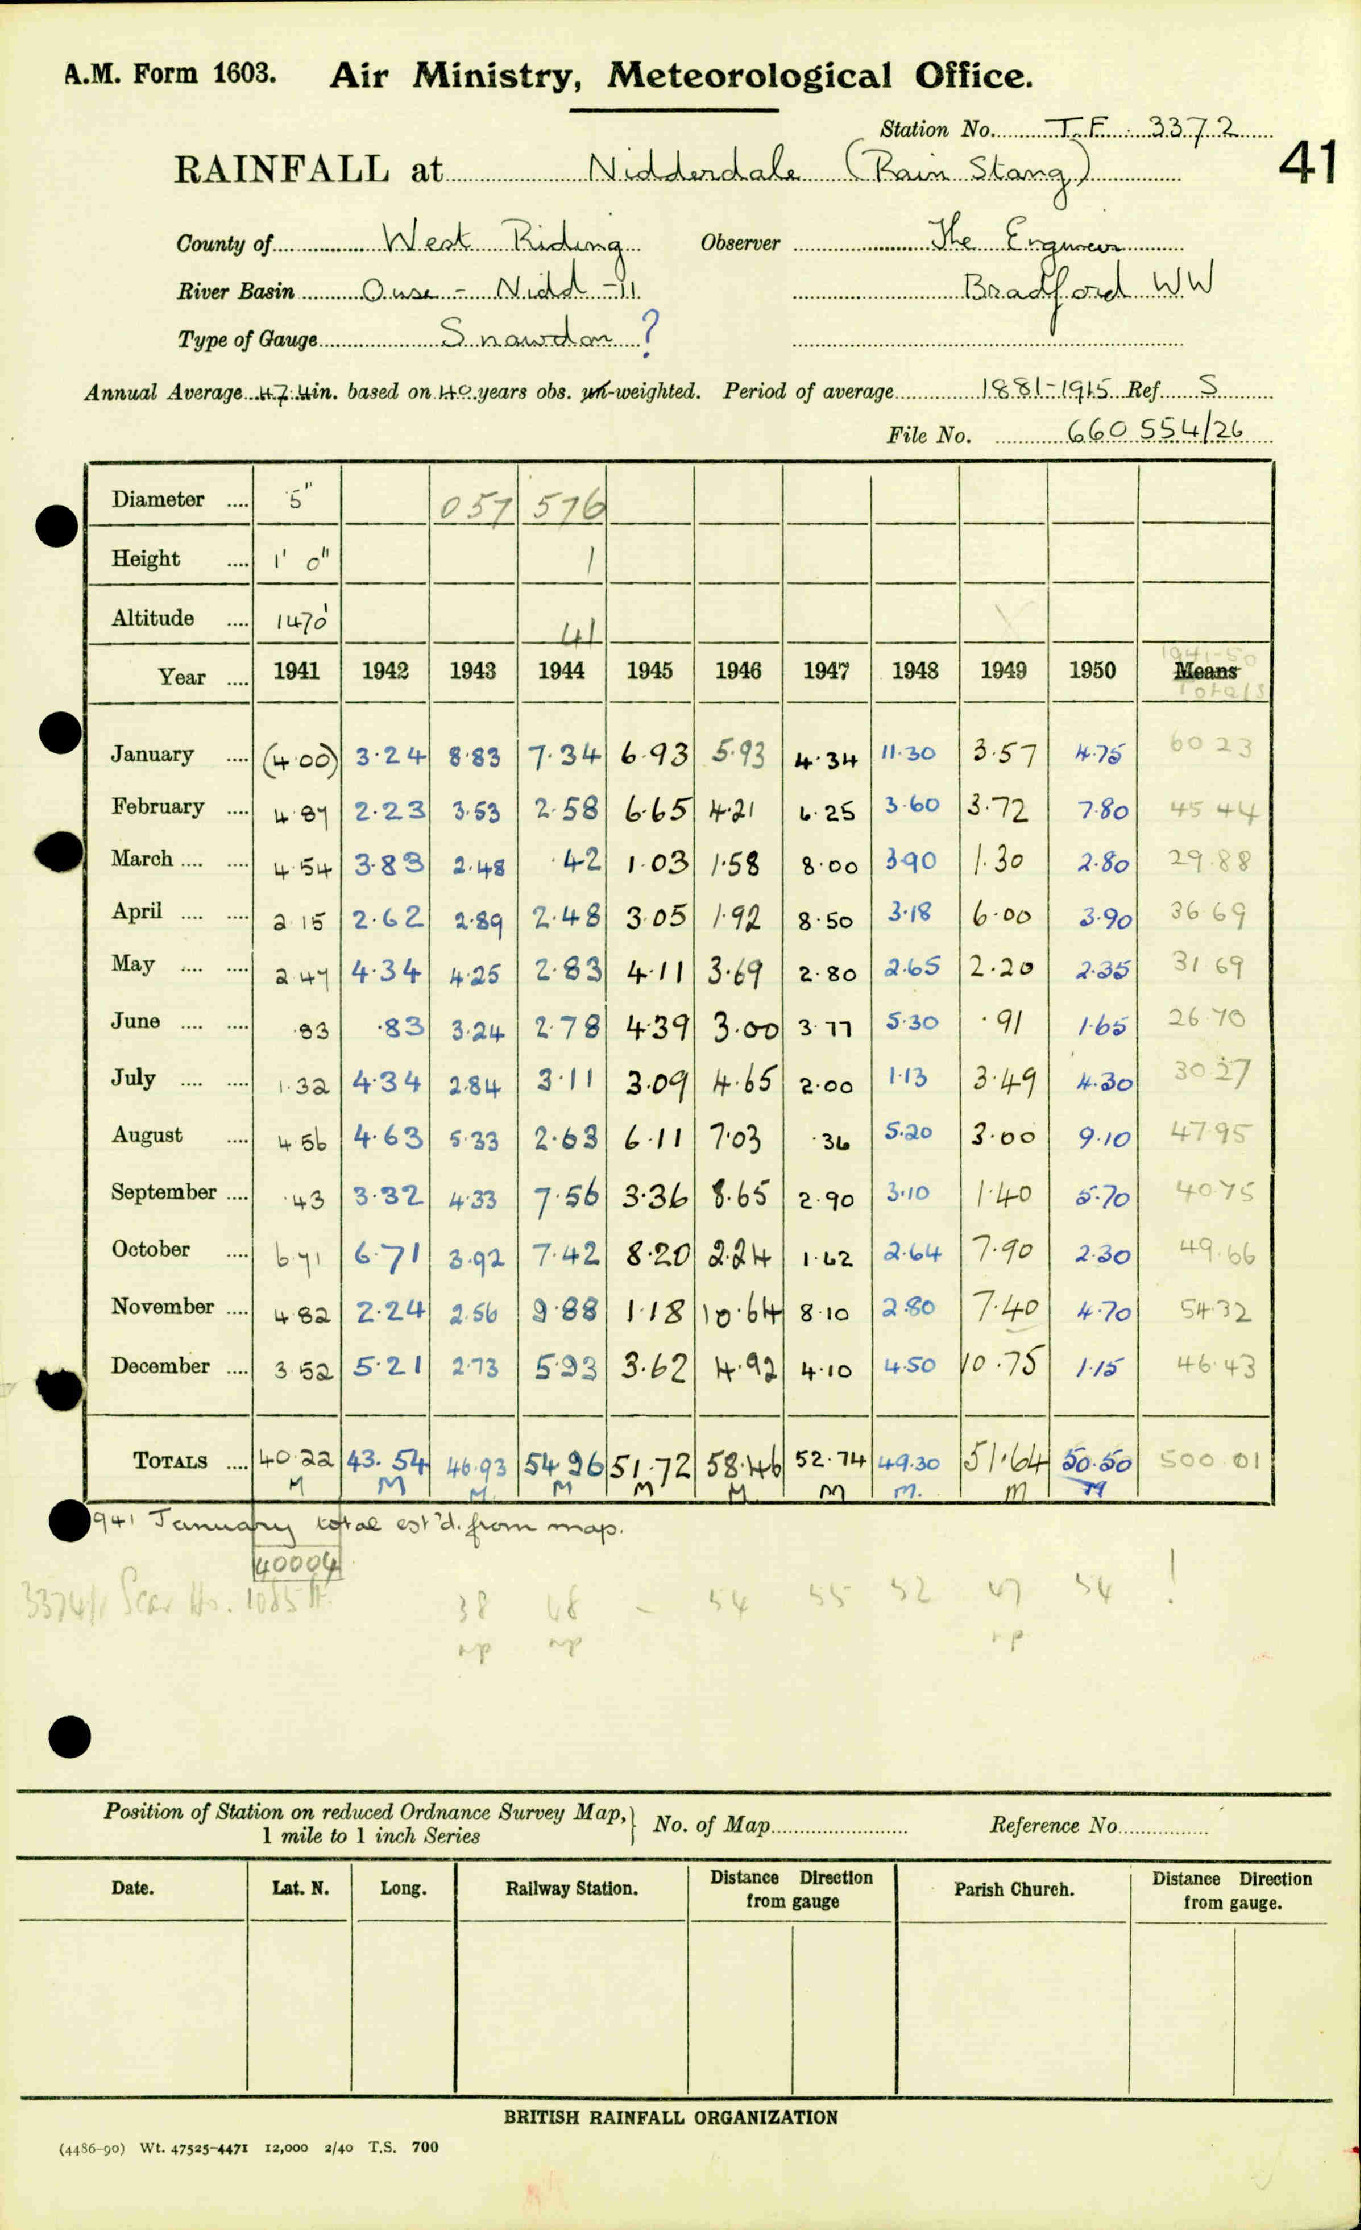 A.M. Form 1603. Air Ministry, Meteorological Office.
Station No. T.F. 3372
41
RAINFALL at Nidderdale (Rain Stang)
County of West Riding Observer The Engineer
River Basin Ouse - Nidd - 11 Bradford WW
Type of Gauge Snowdon ?
Annual Average 47.4 in. based on 40 years obs. un-weighted. Period of average 1881-1915 Ref S
File No. 660554/26
Diameter .... 5" 057 576
Height .... 1' 0" 1
Altitude .... 1470' 41
1941-50
Year .... 1941 1942 1943 1944 1945 1946 1947 1948 1949 1950 Means
Totals
January .... (4.00) 3.24 8.83 7.34 6.93 5.93 4.34 11.30 3.57 4.75 60 23
February .... 4.87 2.23 3.53 2.58 6.65 4.21 6.25 3.60 3.72 7.80 45 44
March .... .... 4.54 3.83 2.48 .42 1.03 1.58 8.00 3.90 1.30 2.80 29.88
April .... .... 2 15 2.62 2.89 2.48 3.05 1.92 8.50 3.18 6.00 3.90 36 69
May .... .... 2.47 4.34 4.25 2.83 4.11 3.69 2.80 2.65 2.20 2.35 31 69
June .... .... .83 .83 3.24 2.78 4.39 3.00 3 77 5.30 .91 1.65 26.70
July .... .... 1.32 4.34 2.84 3.11 3.09 4.65 2.00 1.13 3.49 4.30 30.27
August .... 4 56 4.63 5.33 2.63 6.11 7.03 .36 5.20 3.00 9.10 47.95
September .... .43 3.32 4.33 7.56 3.36 8.65 2.90 3.10 1.40 5.70 40.75
October .... 6.71 6.71 3.92 7.42 8.20 2.24 1.62 2.64 7.90 2.30 49.66
November .... 4.82 2.24 2.56 9.88 1.18 10.64 8.10 2.80 7.40 4.70 54.32
December .... 3.52 5.21 2.73 5.93 3.62 4.92 4.10 4.50 10.75 1.15 46.43
TOTALS .... 40.22 43.54 46.93 54.96 51.72 58.46 52.74 49.30 51.64 50.50 500.01
M M M M M M M m. m M
941 January total est'd. from map.
40004
3374/1 Scar Ho. 1085 ft. 38 48 - 54 55 52 47 54 !
np np np
Position of Station on reduced Ordnance Survey Map,
1 mile to 1 inch Series
No. of Map Reference No.
Date. Lat. N. Long. Railway Station. Distance Direction from gauge Parish Church. Distance Direction from gauge.
BRITISH RAINFALL ORGANIZATION
(4486-90) Wt. 47525-4471 12,000 2/40 T.S. 700